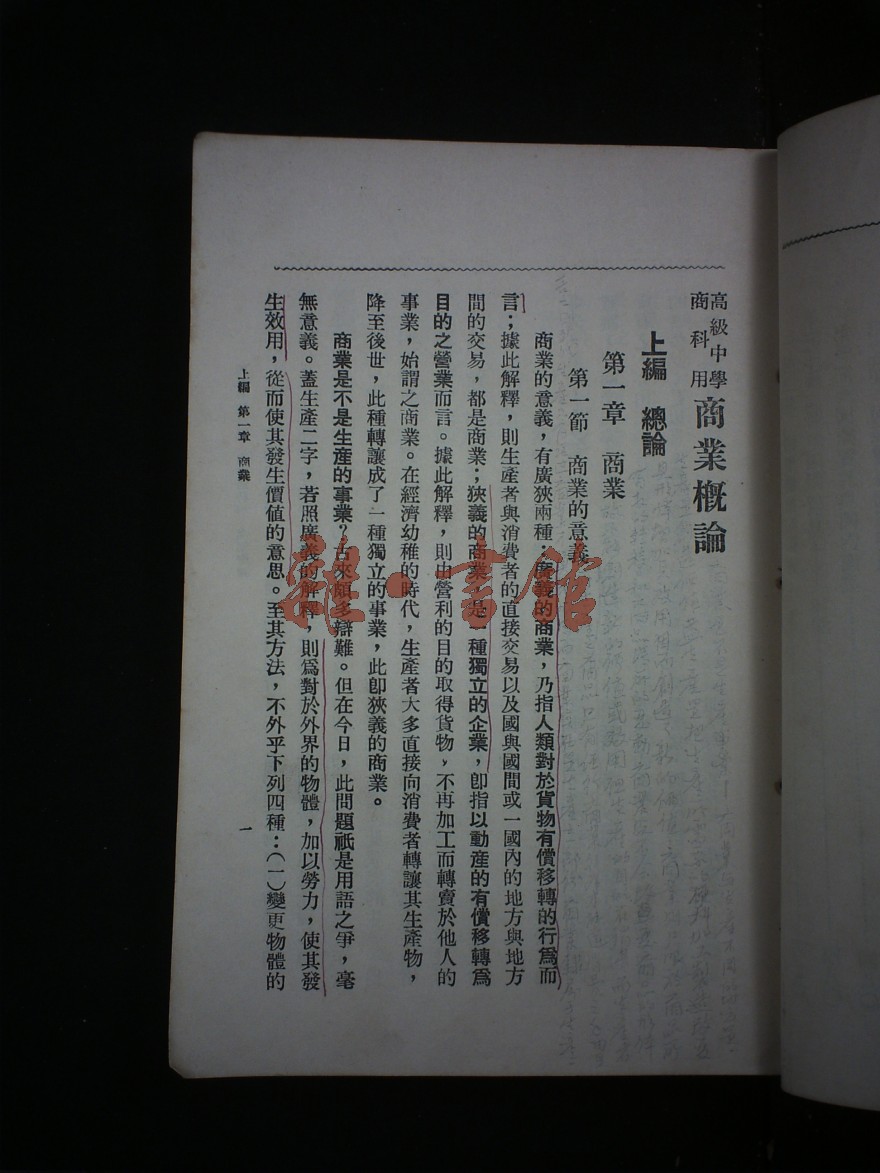 高級中學
商科用
商業概論
上編　總論
第一章　商業
第一節　商業的意義
商業的意義，有廣狹兩種：廣義的商業，乃指人類對於貨物有償移轉的行為而
言；據此解釋，則生產者與消費者的直接交易以及國與國間或一國內的地方與地方
間的交易，都是商業；狹義的商業，是一種獨立的企業，卽指以動產的有償移轉爲
目的之營業而言。據此解釋，則由營利的目的取得貨物，不再加工而轉賣於他人的
事業，始謂之商業。在經濟幼稚的時代，生產者大多直接向消費者轉讓其生產物，
降至後世，此種轉讓成了一種獨立的事業，此卽狹義的商業。
商業是不是生產的事業？古來頗多辯難。但在今日，此問題祇是用語之爭，毫
無意義。蓋生產二字，若照廣義的解釋，則爲對於外界的物體，加以勞力，使其發
生效用，從而使其發生價值的意思。至其方法，不外乎下列四種：（一）變更物體的
上編　第一章　商業
一
雜·書館